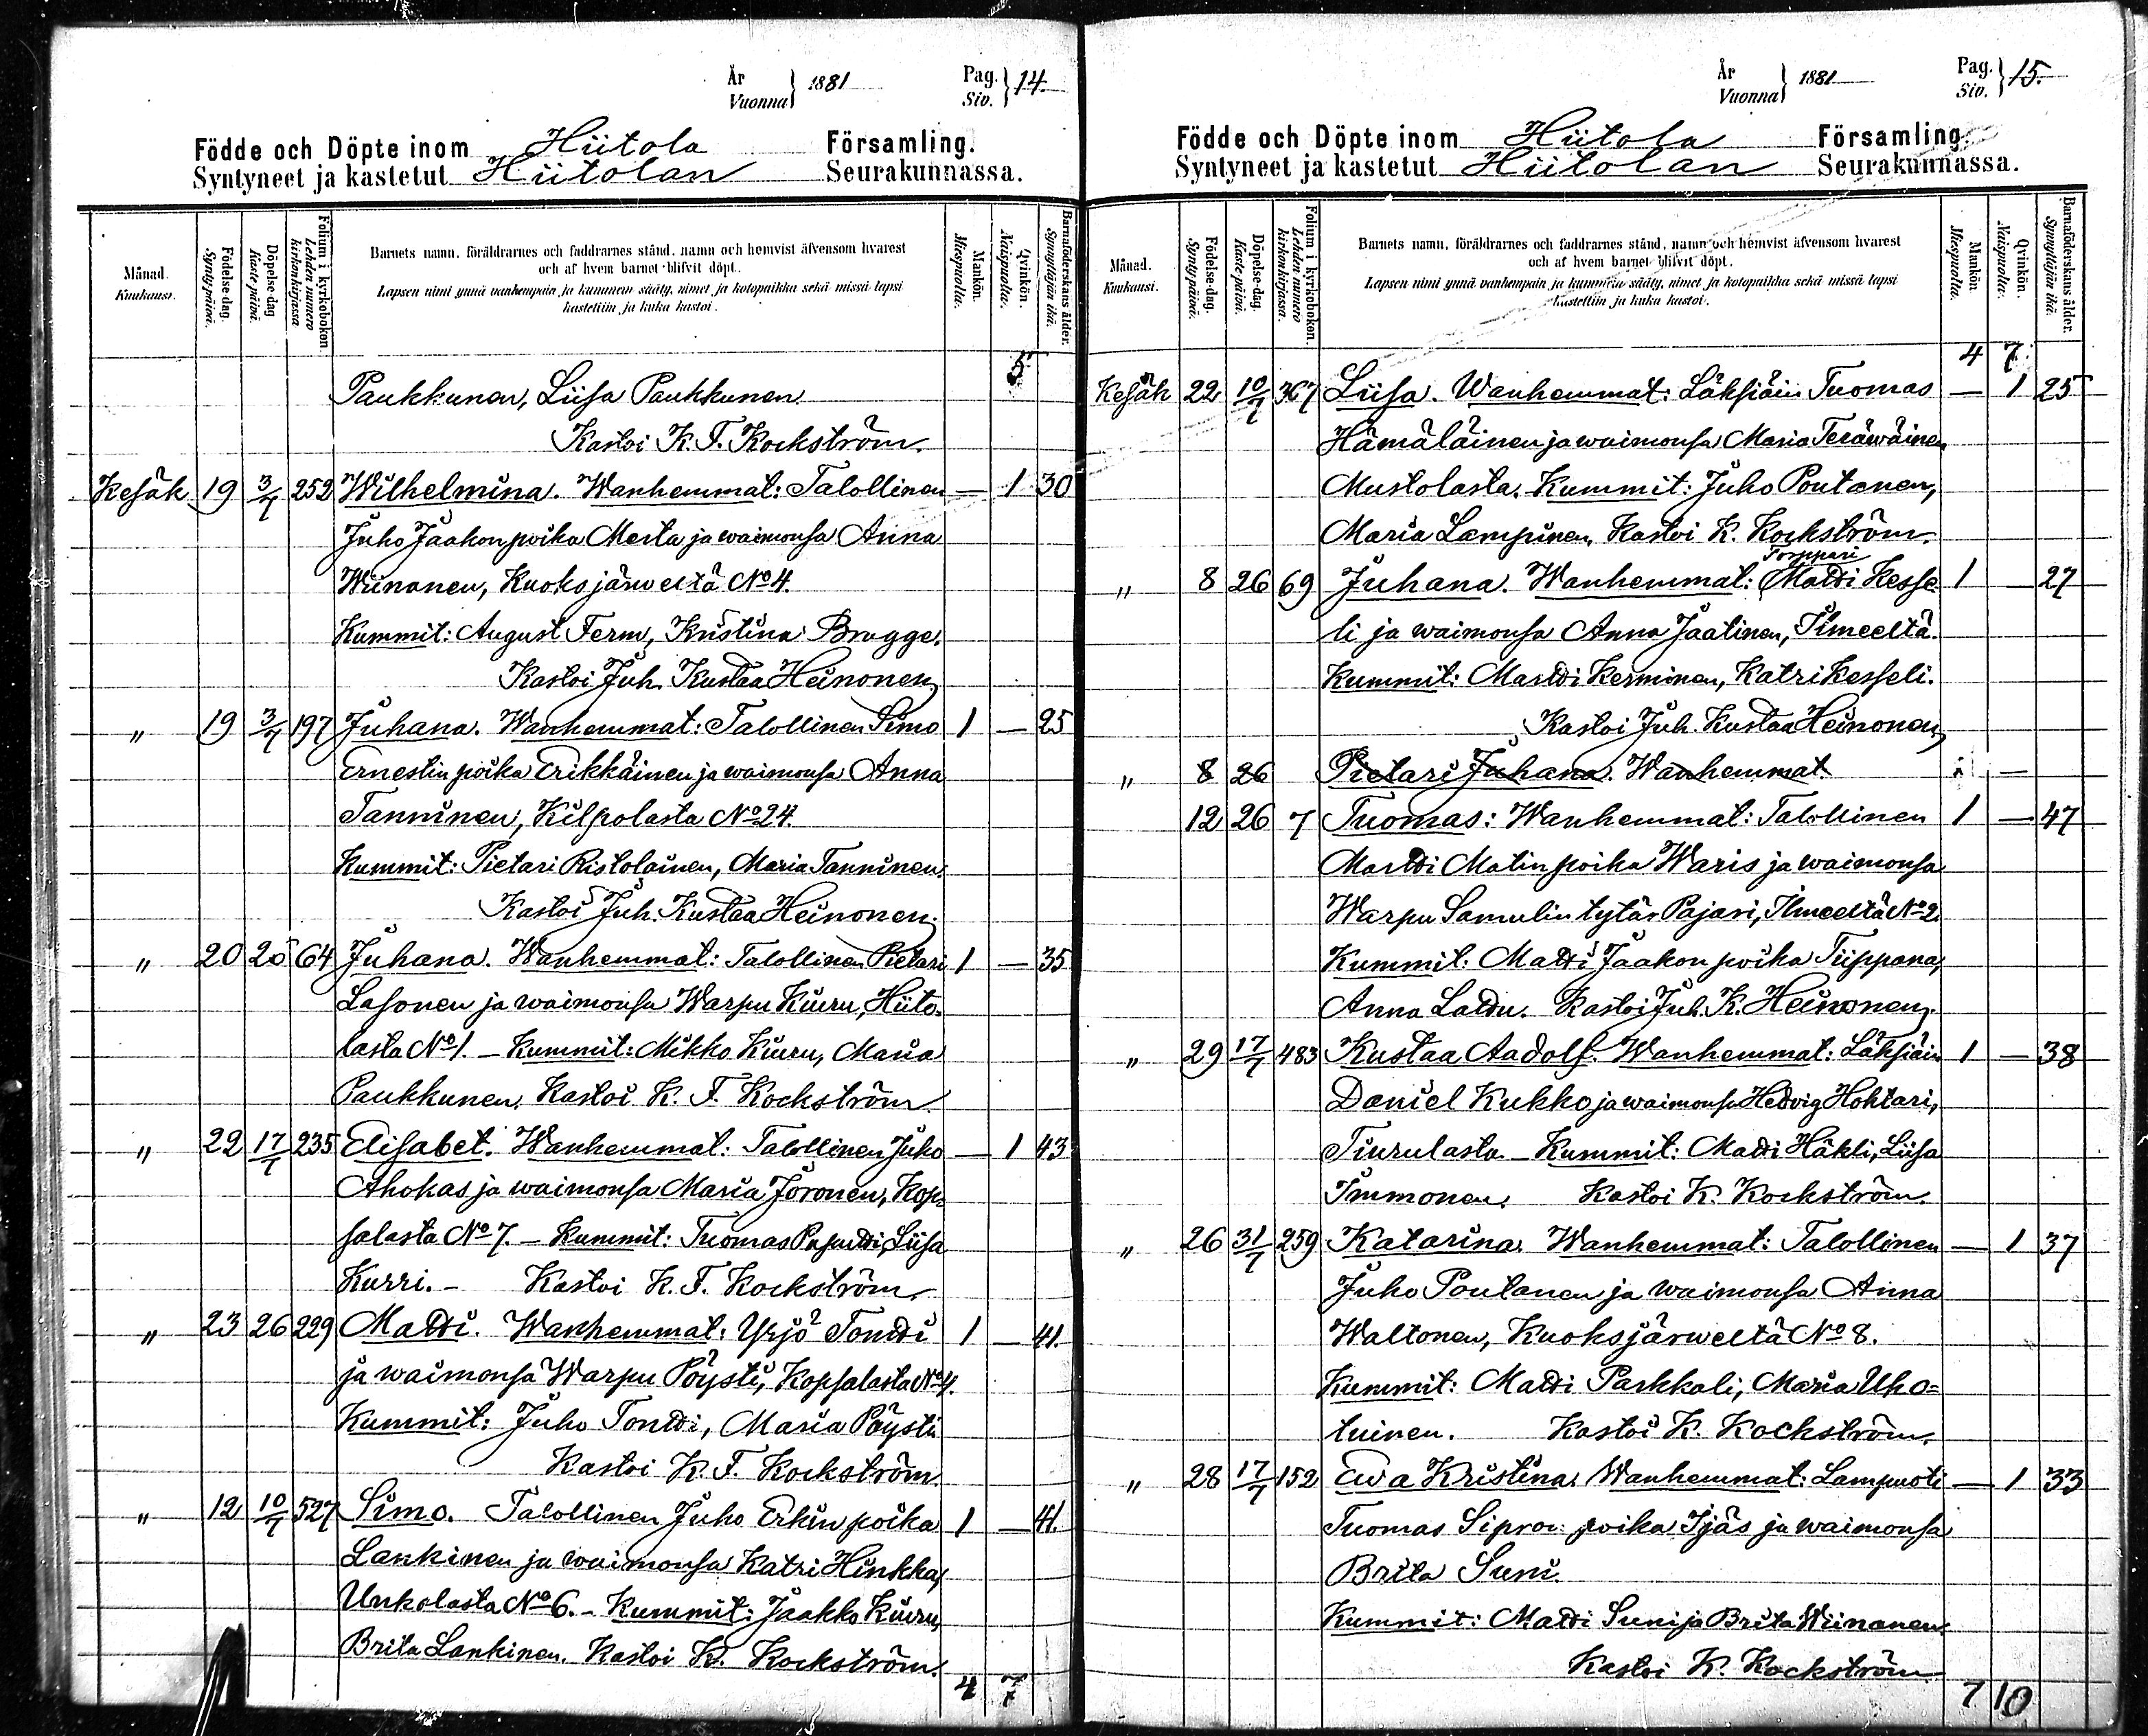 År
Vuonna } 1881
Pag.
Siv. } 14.
Födde och Döpte inom Hiitola Församling.
Syntyneet ja kastetut Hiitolan Seurakunnassa.
Månad.
Kuukausi.
Födelse-dag.
Synty-päivä.
Döpelse-dag
Kaste-päivä.
Folium i kyrkobokon.
Lehden numero
kirkonkirjassa
Barnets namn, föräldrarnes och faddrarnes stånd, namn och hemvist äfvensom hvarest
och af hvem barnet blifvit döpt.
Lapsen nimi ynnä vanhempain ja kummein sääty, nimet ja kotopaikka sekä missä lapsi
kastettiin ja kuka kastoi.
Mankön.
Miespuolia.
Qvinkön.
Naispuolia.
Barnaföderskans ålder.
Synnyttäjän ikä.
5
Paukkunen, Liisa Paukkunen
Kastoi K. F. Kockström.
Kesäk 19 3/7 252 Wilhelmina. Wanhemmat: Talollinen — 1 30
Juho Jaakon poika Mesta ja waimonsa Anna
Wiinanen, Kuoksjärweltä No 4.
Kummit: August Ferm, Kristina Brugge.
Kastoi Juh. Kustaa Heinonen
" 19 3/7 197 Juhana. Wanhemmat: Talollinen Simo 1 — 25
Ernestin poika Erikkäinen ja waimonsa Anna
Tanninen, Kilpolasta No 24.
Kummit: Pietari Ristolainen, Maria Tanninen.
Kastoi Juh. Kustaa Heinonen.
" 20 26 64 Juhana. Wanhemmat: Talollinen Pietari 1 — 35
Lasonen ja waimonsa Warpu Kiuru, Hiito-
lasta No 1. — Kummit: Mikko Kiuru, Maria
Paukkunen. Kastoi K. F. Kockström
" 22 17/7 235 Elisabet. Wanhemmat: Talollinen Juho — 1 43
Ahokas ja waimonsa Maria Joronen, Kop-
salasta No 7. — Kummit: Tuomas Pusutti, Liisa
Kurri. — Kastoi K. F. Kockström
" 23 26 229 Matti. Wanhemmat: Yrjö Tontti 1 — 41.
ja waimonsa Warpu Pöysti, Kopsalasta No 4.
Kummit: Juho Tontti, Maria Pöysti
Kastoi K. F. Kockström.
" 12 10/7 527 Simo. Talollinen Juho Erkin poika 1 — 41.
Lankinen ja waimonsa Katri Hinkka,
Unkolasta No 6. — Kummit: Jaakko Kiuru,
Brita Lankinen. Kastoi K. Kockström.
4 7
År
Vuonna } 1881
Pag.
Siv. } 15.
Födde och Döpte inom Hiitola Församling.
Syntyneet ja kastetut Hiitolan Seurakunnassa.
Månad.
Kuukausi.
Födelse-dag.
Synty-päivä.
Döpelse-dag.
Kaste-päivä.
Folium i kyrkobokon.
Lehden numero
kirkonkirjassa.
Barnets namn, föräldrarnes och faddrarnes stånd, namn och hemvist äfvensom hvarest
och af hvem barnet blifvit döpt.
Lapsen nimi ynnä vanhempain ja kummein sääty, nimet ja kotopaikka sekä missä lapsi
kastettiin ja kuka kastoi.
Mankön
Miespuolia.
Qvinkön.
Naispuolia.
Barnaföderskans ålder.
Synnyttäjän ikä.
4 7
Kesäk 22 10/7 367 Liisa. Wanhemmat: Läksiäin Tuomas — 1 25
Hämäläinen ja waimonsa Maria Teräwäinen
Mustolasta. Kummit: Juho Poutanen,
Maria Lampinen. Kastoi K. Kockström.
Torppari
" 8 26 69 Juhana. Wanhemmat: Matti Kesse- 1 — 27
li ja waimonsa Anna Jaatinen, Ilmeeltä.
Kummit: Martti Kerminen, Katri Kesseli.
Kastoi Juh. Kustaa Heinonen
" 8 26 Pietari Juhana. Wanhemmat 1 —
12 26 7 Tuomas: Wanhemmat: Talollinen 1 — 47
Martti Matin poika Waris ja waimonsa
Warpu Samulin tytär Pajari, Ilmeeltä No 2.
Kummit: Matti Jaakon poika Tiippana,
Anna Lattu. Kastoi Juh. K. Heinonen.
" 29 17/7 483 Kustaa Aadolf. Wanhemmat: Läksiäin 1 — 38
Daniel Kukko ja waimonsa Hedvig Hohtari,
Tiurulasta — Kummit: Matti Häkli, Liisa
Immonen. Kastoi K. Kockström.
" 26 31/7 259 Katarina. Wanhemmat: Talollinen — 1 37
Juho Poutanen ja waimonsa Anna
Waltonen, Kuoksjärweltä No 8.
Kummit: Matti Parkkali, Maria Uho=
tuinen. Kastoi K. Kockström.
" 28 17/7 152 Ewa Kristina. Wanhemmat: Lampuoti — 1 33
Tuomas poika Ijäs ja waimonsa
Brita Suni.
Kummit: Matti Suni ja Brita Wiinanen
Kastoi K. Kockström
7 10